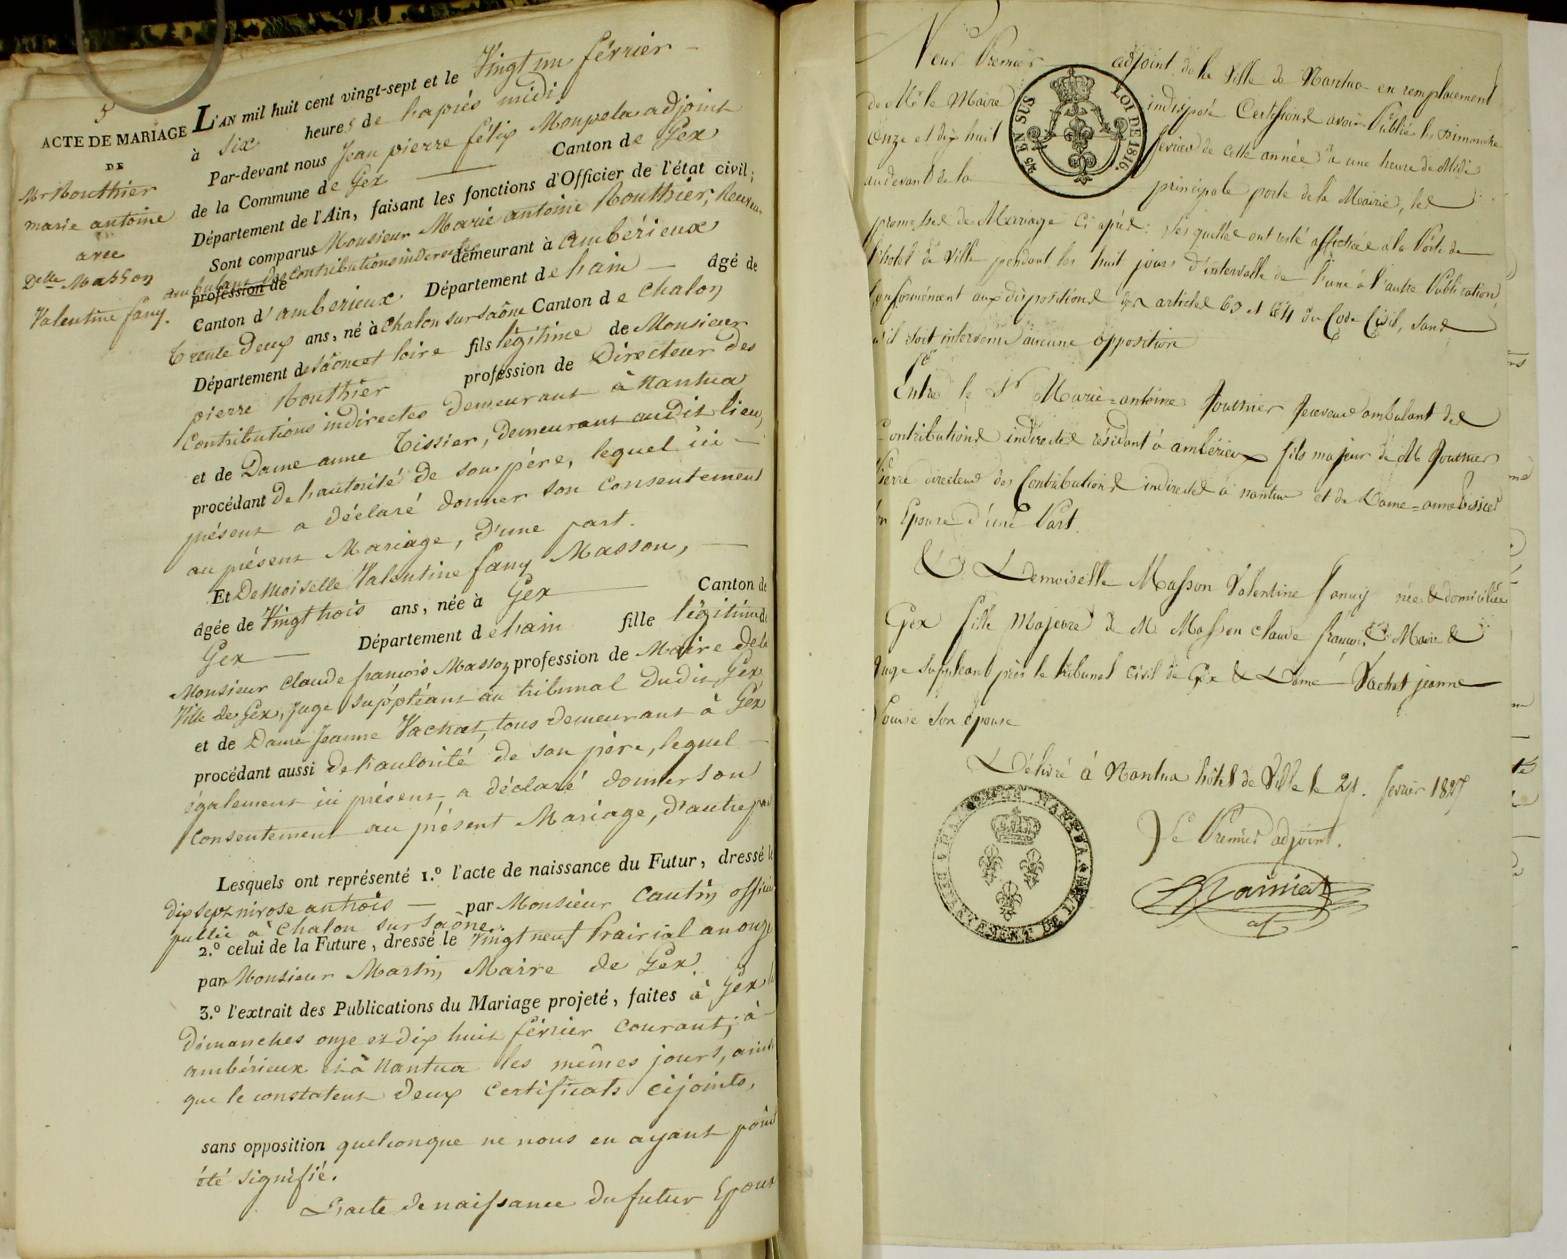 5
ACTE DE MARIAGE
DE
Mr Routhier
marie antoine
avec
Delle Masson
Valentine fany.
L'AN mil huit cent vingt-sept et le Vingt un février
à Six heures de l'après midi
Par-devant nous Jean pierre félix Monpela adjoint
de la Commune de Gex Canton de Gex
Département de l'Ain, faisant les fonctions d'Officier de l'état civil;
Sont comparus Monsieur Marie antoine Routhier, Receveur
ambulant des Contributions indirectes
profession de demeurant à ambérieux
Canton d'ambérieux Département de l'ain âgé de
trente Deux ans, né à Chalon sur Saône Canton de Chalon
Département de Saône et loire fils légitime de Monsieur
pierre Routhier profession de Directeur des
Contributions indirectes demeurant à Nantua
et de Dame anne Tissier, demeurant audit lieu,
procédant de l'autorité de son père, lequel ici
présent a déclaré donner son consentement
au présent Mariage, d'une part.
Et Demoiselle Valentine fany Masson,
âgée de Vingt trois ans, née à Gex Canton de
Gex Département de l'ain fille légitime de
Monsieur Claude françois Masson profession de Maire de la
Ville de Gex, juge suppléant au tribunal dudit Gex
et de Dame Jeanne Vachat, tous demeurant à Gex
procédant aussi de l'autorité de son père, lequel
également ici présent, a déclaré donner son
Consentement au présent Mariage, d'autre part
Lesquels ont représenté 1.º l'acte de naissance du Futur, dressé le
dix sept nivose an trois par Monsieur Cautin officier
public à Chalon sur Saône.
2.º celui de la Future, dressé le Vingt neuf Prairial an onze
par Monsieur Martin Maire de Gex
3.º l'extrait des Publications du Mariage projeté, faites à Gex les
Dimanches onze et dix huit février Courant, à
ambérieux et à Nantua les mêmes jours, ainsi
que le constatent deux Certificats cijoints,
sans opposition quelconque ne nous en ayant point
été signifié.
L'acte de naissance du futur Epoux
Nous Premier adjoint de la Ville de Nantua en remplacement
de Mr. le Maire indisposé Certifions avoir Publié les Dimanches
Onze et dix huit février de cette année à une heure de Midi
audevant de la principale porte de la Mairie, les
promesses de Mariage Ci après: Lesquelles ont resté affichées à la Porte de
l'hotel de Ville pendant les huit jours d'intervalle de l'une à l'autre Publication
Conformément aux dispositions des articles 63 et 64 du Code Civil, sans
qu'il soit intervenu aucune opposition
Entre le Sr Marie=antoine Routhier Receveur ambulant des
Contributions indirectes résidant à ambérieux fils majeur de M Routhier
Pierre directeur des Contributions indirectes à nantua et de Dame=anne Tissier
son Epouse d'une Part.
Et Demoiselle Masson Valentine fanny née & domiciliée
Gex fille Majeure de M Masson claude françois Maire &
Juge Suppléant près le tribunal civil de Gex & Dame Vachat jeanne
Louise Son épouse
Délivré à Nantua hôtel de Ville le 21. fevrier 1827
Le Premier adjoint.
EN SUS
LOI DE 1816.
MAIRIE DE NANTUA
DEPARTEMENT DE L'AIN